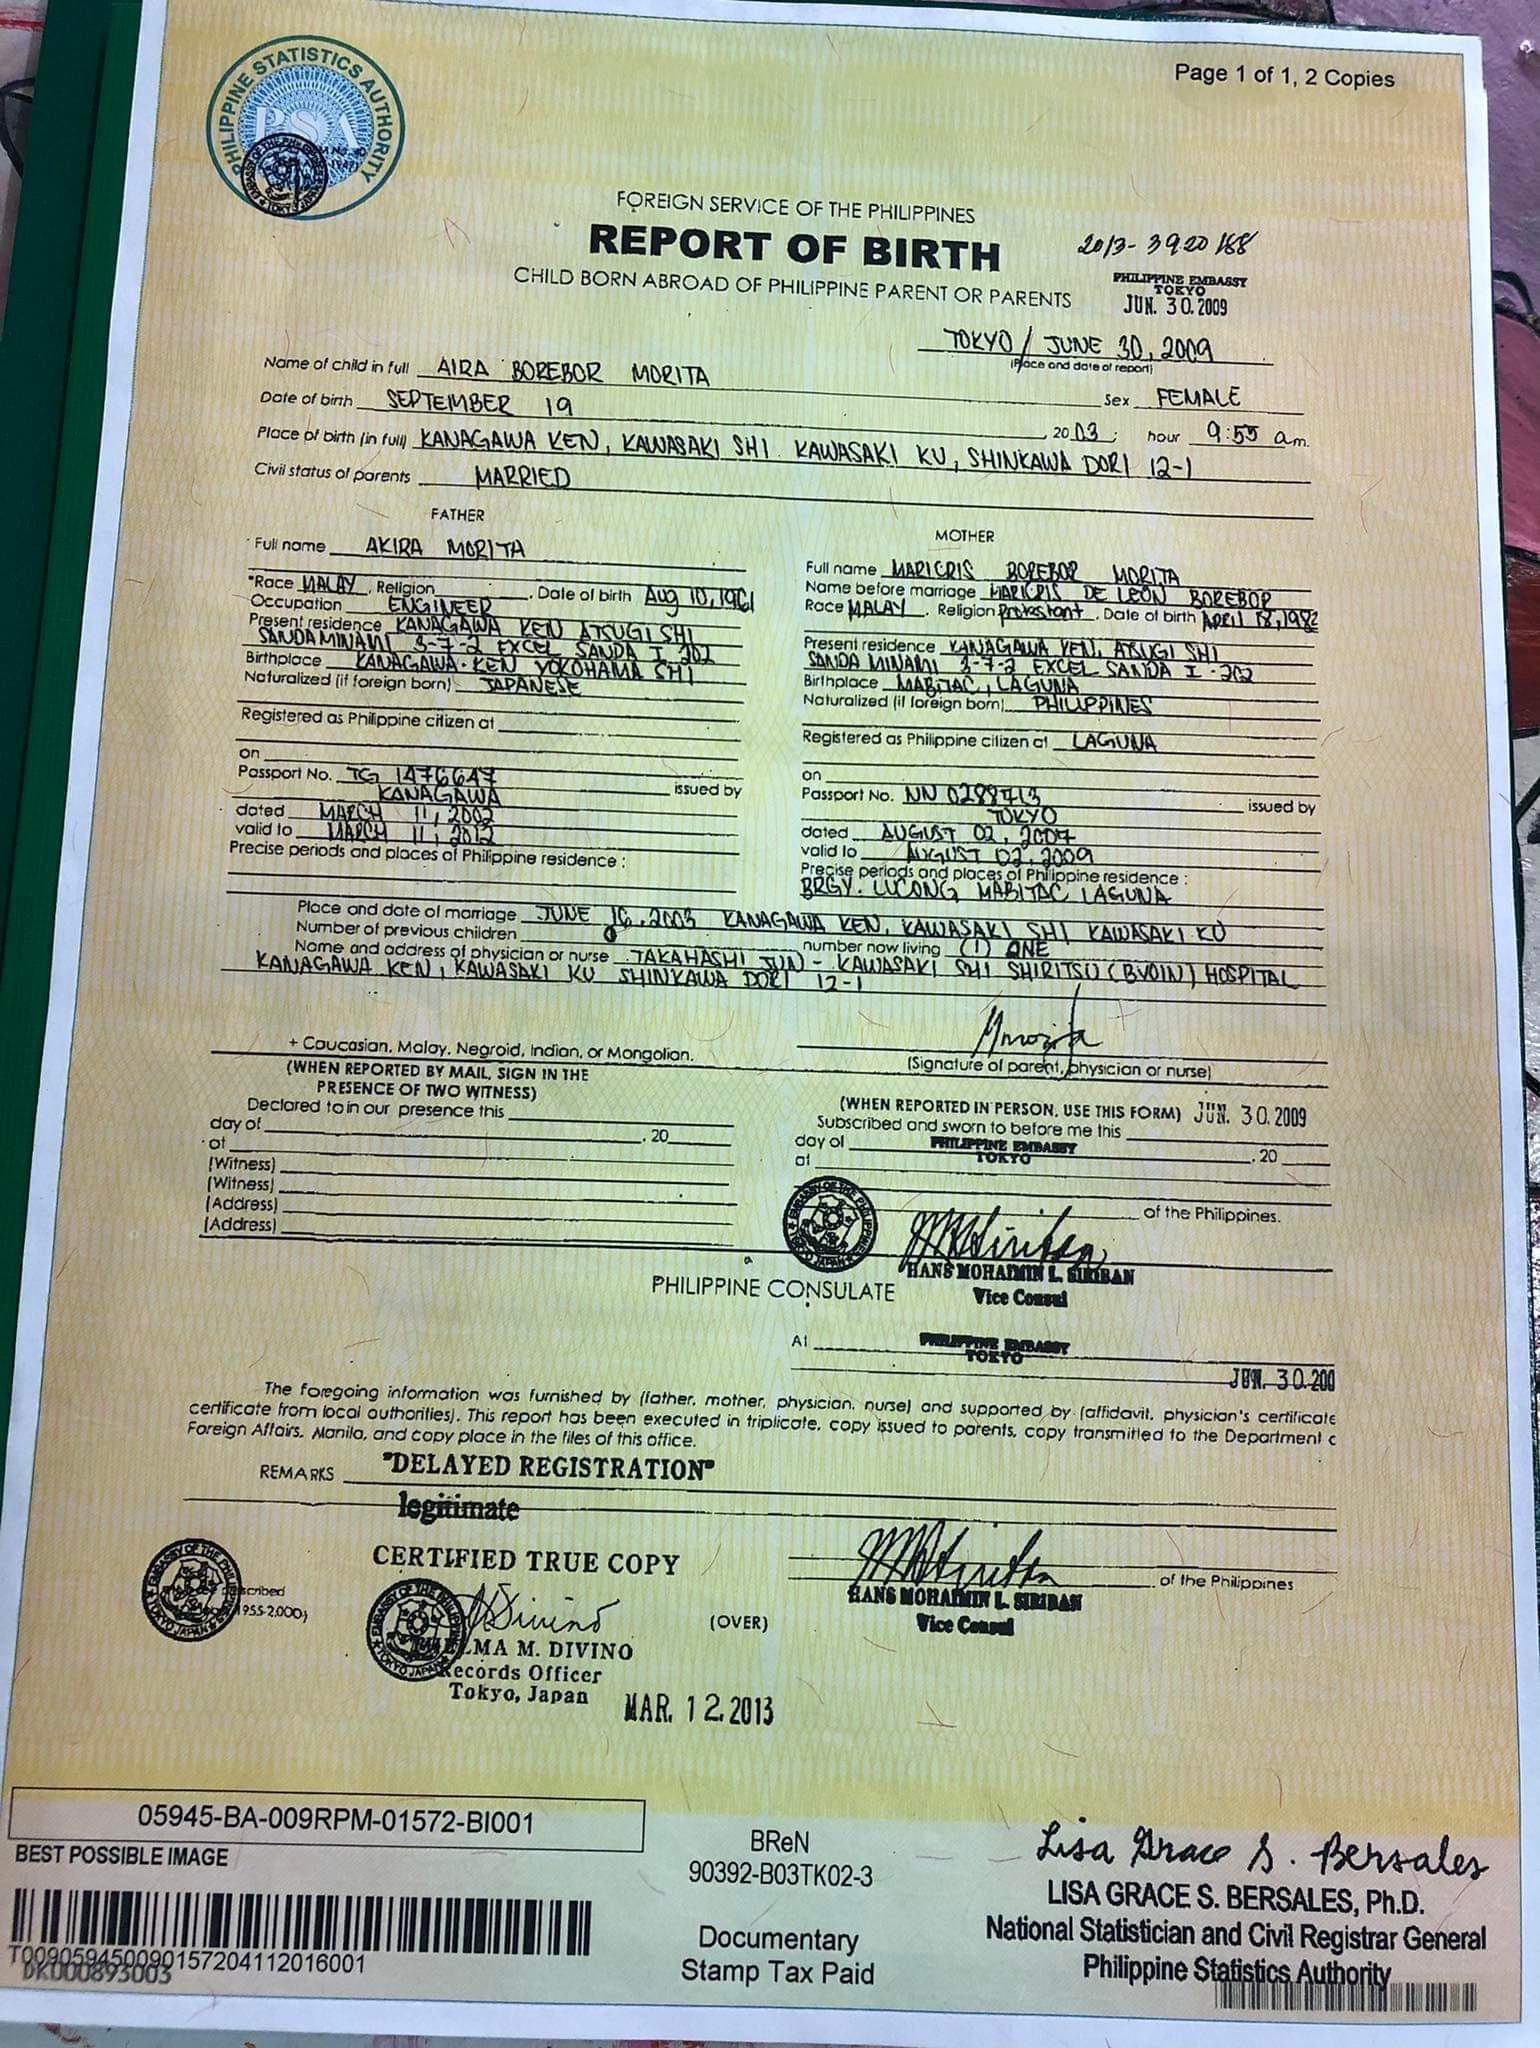 Page 1 of 1, 2 Copies
PHILIPPINE STATISTICS AUTHORITY
PSA
FOREIGN SERVICE OF THE PHILIPPINES
REPORT OF BIRTH
CHILD BORN ABROAD OF PHILIPPINE PARENT OR PARENTS
2013-3920168
PHILIPPINE EMBASSY
TOKYO
JUN. 30. 2009
TOKYO / JUNE 30, 2009
(Place and date of report)
Name of child in full AIRA BOREBOR MORITA
Sex FEMALE
Date of birth SEPTEMBER 19, 2003; hour 9:55 a.m.
Place of birth (in full) KANAGAWA KEN, KAWASAKI SHI KAWASAKI KU, SHINKAWA DORI 12-1
Civil status of parents MARRIED
FATHER
Full name AKIRA MORITA
*Race MALAY, Religion, Date of birth Aug 10, 1961
Occupation ENGINEER
Present residence KANAGAWA KEN ATSUGI SHI
SANDAMINAMI 3-7-2 EXCEL SANDA I 202
Birthplace KANAGAWA-KEN YOKOHAMA SHI
Naturalized (if foreign born) JAPANESE
Registered as Philippine citizen at
on
Passport No. TG 1476647
issued by KANAGAWA
dated MARCH 11, 2002
valid to MARCH 11, 2012
Precise periods and places of Philippine residence:
MOTHER
Full name MARICRIS BOREBOR MORITA
Name before marriage MARICRIS DE LEON BOREBOR
Race MALAY, Religion protestant, Date of birth APRIL 18, 1982
Present residence KANAGAWA KEN, ATSUGI SHI
SANDA MINAMI 3-7-2 EXCEL SANDA I-202
Birthplace MABITAC, LAGUNA
Naturalized (if foreign born) PHILIPPINES
Registered as Philippine citizen at LAGUNA
on
Passport No. NN 0288713
issued by TOKYO
dated AUGUST 02, 2004
valid to AUGUST 02, 2009
Precise periods and places of Philippine residence:
BRGY. LUCONG MABITAC LAGUNA
Place and date of marriage JUNE 16, 2003 KANAGAWA KEN, KAWASAKI SHI KAWASAKI KU
Number of previous children 0 number now living (1) ONE
Name and address of physician or nurse TAKAHASHI JUN - KAWASAKI SHI SHIRITSU (BYOIN) HOSPITAL
KANAGAWA KEN, KAWASAKI KU SHINKAWA DORI 12-1
+ Caucasian, Malay, Negroid, Indian, or Mongolian.
(Signature of parent, physician or nurse)
(WHEN REPORTED BY MAIL, SIGN IN THE
PRESENCE OF TWO WITNESS)
Declared to in our presence this
day of , 20
at
(Witness)
(Witness)
(Address)
(Address)
(WHEN REPORTED IN PERSON, USE THIS FORM) JUN. 30. 2009
Subscribed and sworn to before me this
day of PHILIPPINE EMBASSY , 20
at TOKYO
of the Philippines.
EMBASSY OF THE PHILIPPINES TOKYO JAPAN
HANS MOHAIMIN L. SIRIBAN
Vice Consul
PHILIPPINE CONSULATE
At PHILIPPINE EMBASSY
TOKYO
JUN. 30. 200
The foregoing information was furnished by (father, mother, physician, nurse) and supported by (affidavit, physician's certificate
certificate from local authorities). This report has been executed in triplicate, copy issued to parents, copy transmitted to the Department o
Foreign Affairs, Manila, and copy place in the files of this office.
REMARKS "DELAYED REGISTRATION"
legitimate
CERTIFIED TRUE COPY
1955-2000)
EMBASSY OF THE PHILIPPINES TOKYO JAPAN
M. DIVINO
Records Officer
Tokyo, Japan
MAR. 12. 2013
(OVER)
of the Philippines
HANS MOHAIMIN L. SIRIBAN
Vice Consul
05945-BA-009RPM-01572-BI001
BEST POSSIBLE IMAGE
T009059450090157204112016001
DK000893003
BReN
90392-B03TK02-3
Documentary
Stamp Tax Paid
Lisa Grace S. Bersales
LISA GRACE S. BERSALES, Ph.D.
National Statistician and Civil Registrar General
Philippine Statistics Authority